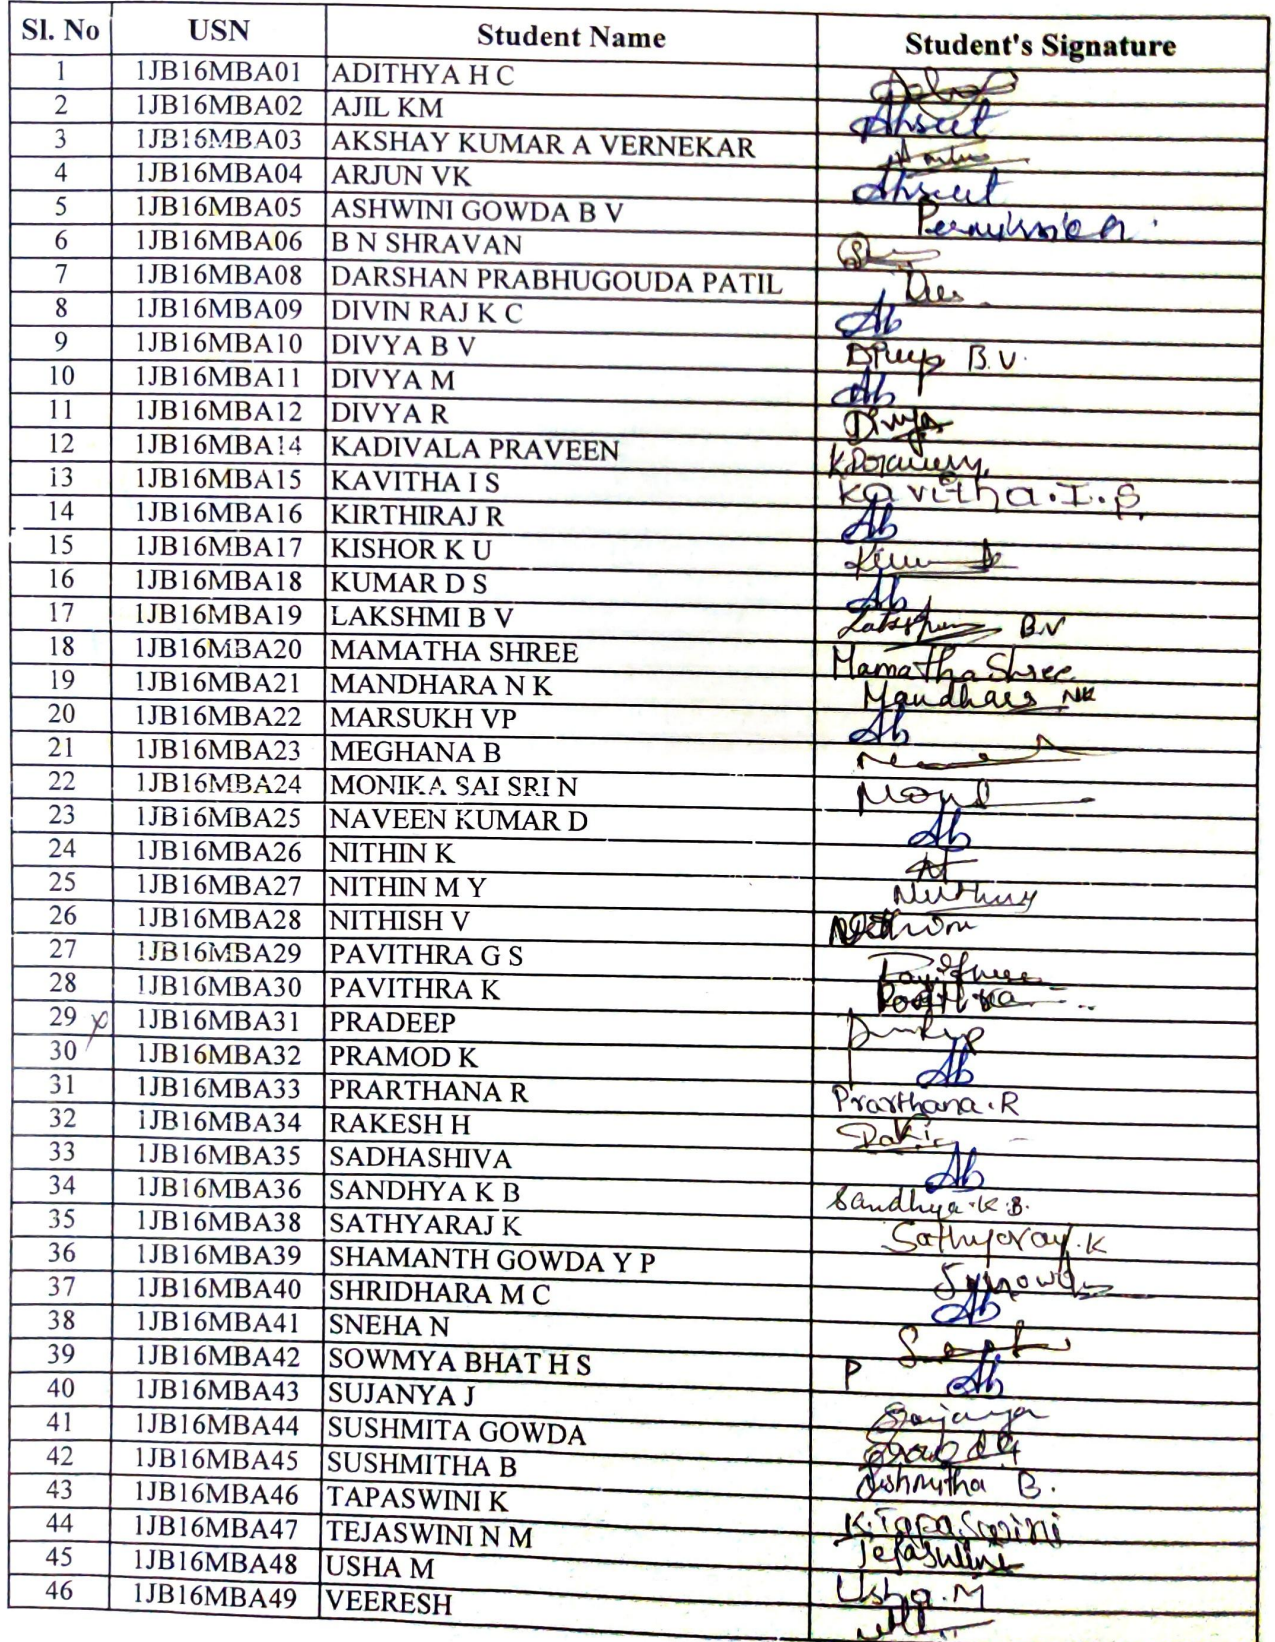 Sl. No USN Student Name Student's Signature
1 1JB16MBA01 ADITHYA H C
2 1JB16MBA02 AJIL KM Absent
3 1JB16MBA03 AKSHAY KUMAR A VERNEKAR
4 1JB16MBA04 ARJUN VK Absent
5 1JB16MBA05 ASHWINI GOWDA B V Permission
6 1JB16MBA06 B N SHRAVAN
7 1JB16MBA08 DARSHAN PRABHUGOUDA PATIL
8 1JB16MBA09 DIVIN RAJ K C Ab
9 1JB16MBA10 DIVYA B V B.V.
10 1JB16MBA11 DIVYA M Ab
11 1JB16MBA12 DIVYA R Divya
12 1JB16MBA14 KADIVALA PRAVEEN
13 1JB16MBA15 KAVITHA I S Kavitha.I.S
14 1JB16MBA16 KIRTHIRAJ R Ab
15 1JB16MBA17 KISHOR K U
16 1JB16MBA18 KUMAR D S Ab
17 1JB16MBA19 LAKSHMI B V B.V
18 1JB16MBA20 MAMATHA SHREE Mamatha Shree
19 1JB16MBA21 MANDHARA N K Mandhara NK
20 1JB16MBA22 MARSUKH VP Ab
21 1JB16MBA23 MEGHANA B
22 1JB16MBA24 MONIKA SAI SRI N
23 1JB16MBA25 NAVEEN KUMAR D Ab
24 1JB16MBA26 NITHIN K
25 1JB16MBA27 NITHIN M Y
26 1JB16MBA28 NITHISH V
27 1JB16MBA29 PAVITHRA G S
28 1JB16MBA30 PAVITHRA K
29 1JB16MBA31 PRADEEP
30 1JB16MBA32 PRAMOD K Ab
31 1JB16MBA33 PRARTHANA R Prarthana.R
32 1JB16MBA34 RAKESH H
33 1JB16MBA35 SADHASHIVA Ab
34 1JB16MBA36 SANDHYA K B Sandhya.K.B.
35 1JB16MBA38 SATHYARAJ K Sathyaraj.K
36 1JB16MBA39 SHAMANTH GOWDA Y P
37 1JB16MBA40 SHRIDHARA M C Ab
38 1JB16MBA41 SNEHA N
39 1JB16MBA42 SOWMYA BHAT H S P Ab
40 1JB16MBA43 SUJANYA J Sujanya
41 1JB16MBA44 SUSHMITA GOWDA
42 1JB16MBA45 SUSHMITHA B Sushmitha B.
43 1JB16MBA46 TAPASWINI K K.Tapaswini
44 1JB16MBA47 TEJASWINI N M Tejaswini
45 1JB16MBA48 USHA M Usha.M
46 1JB16MBA49 VEERESH